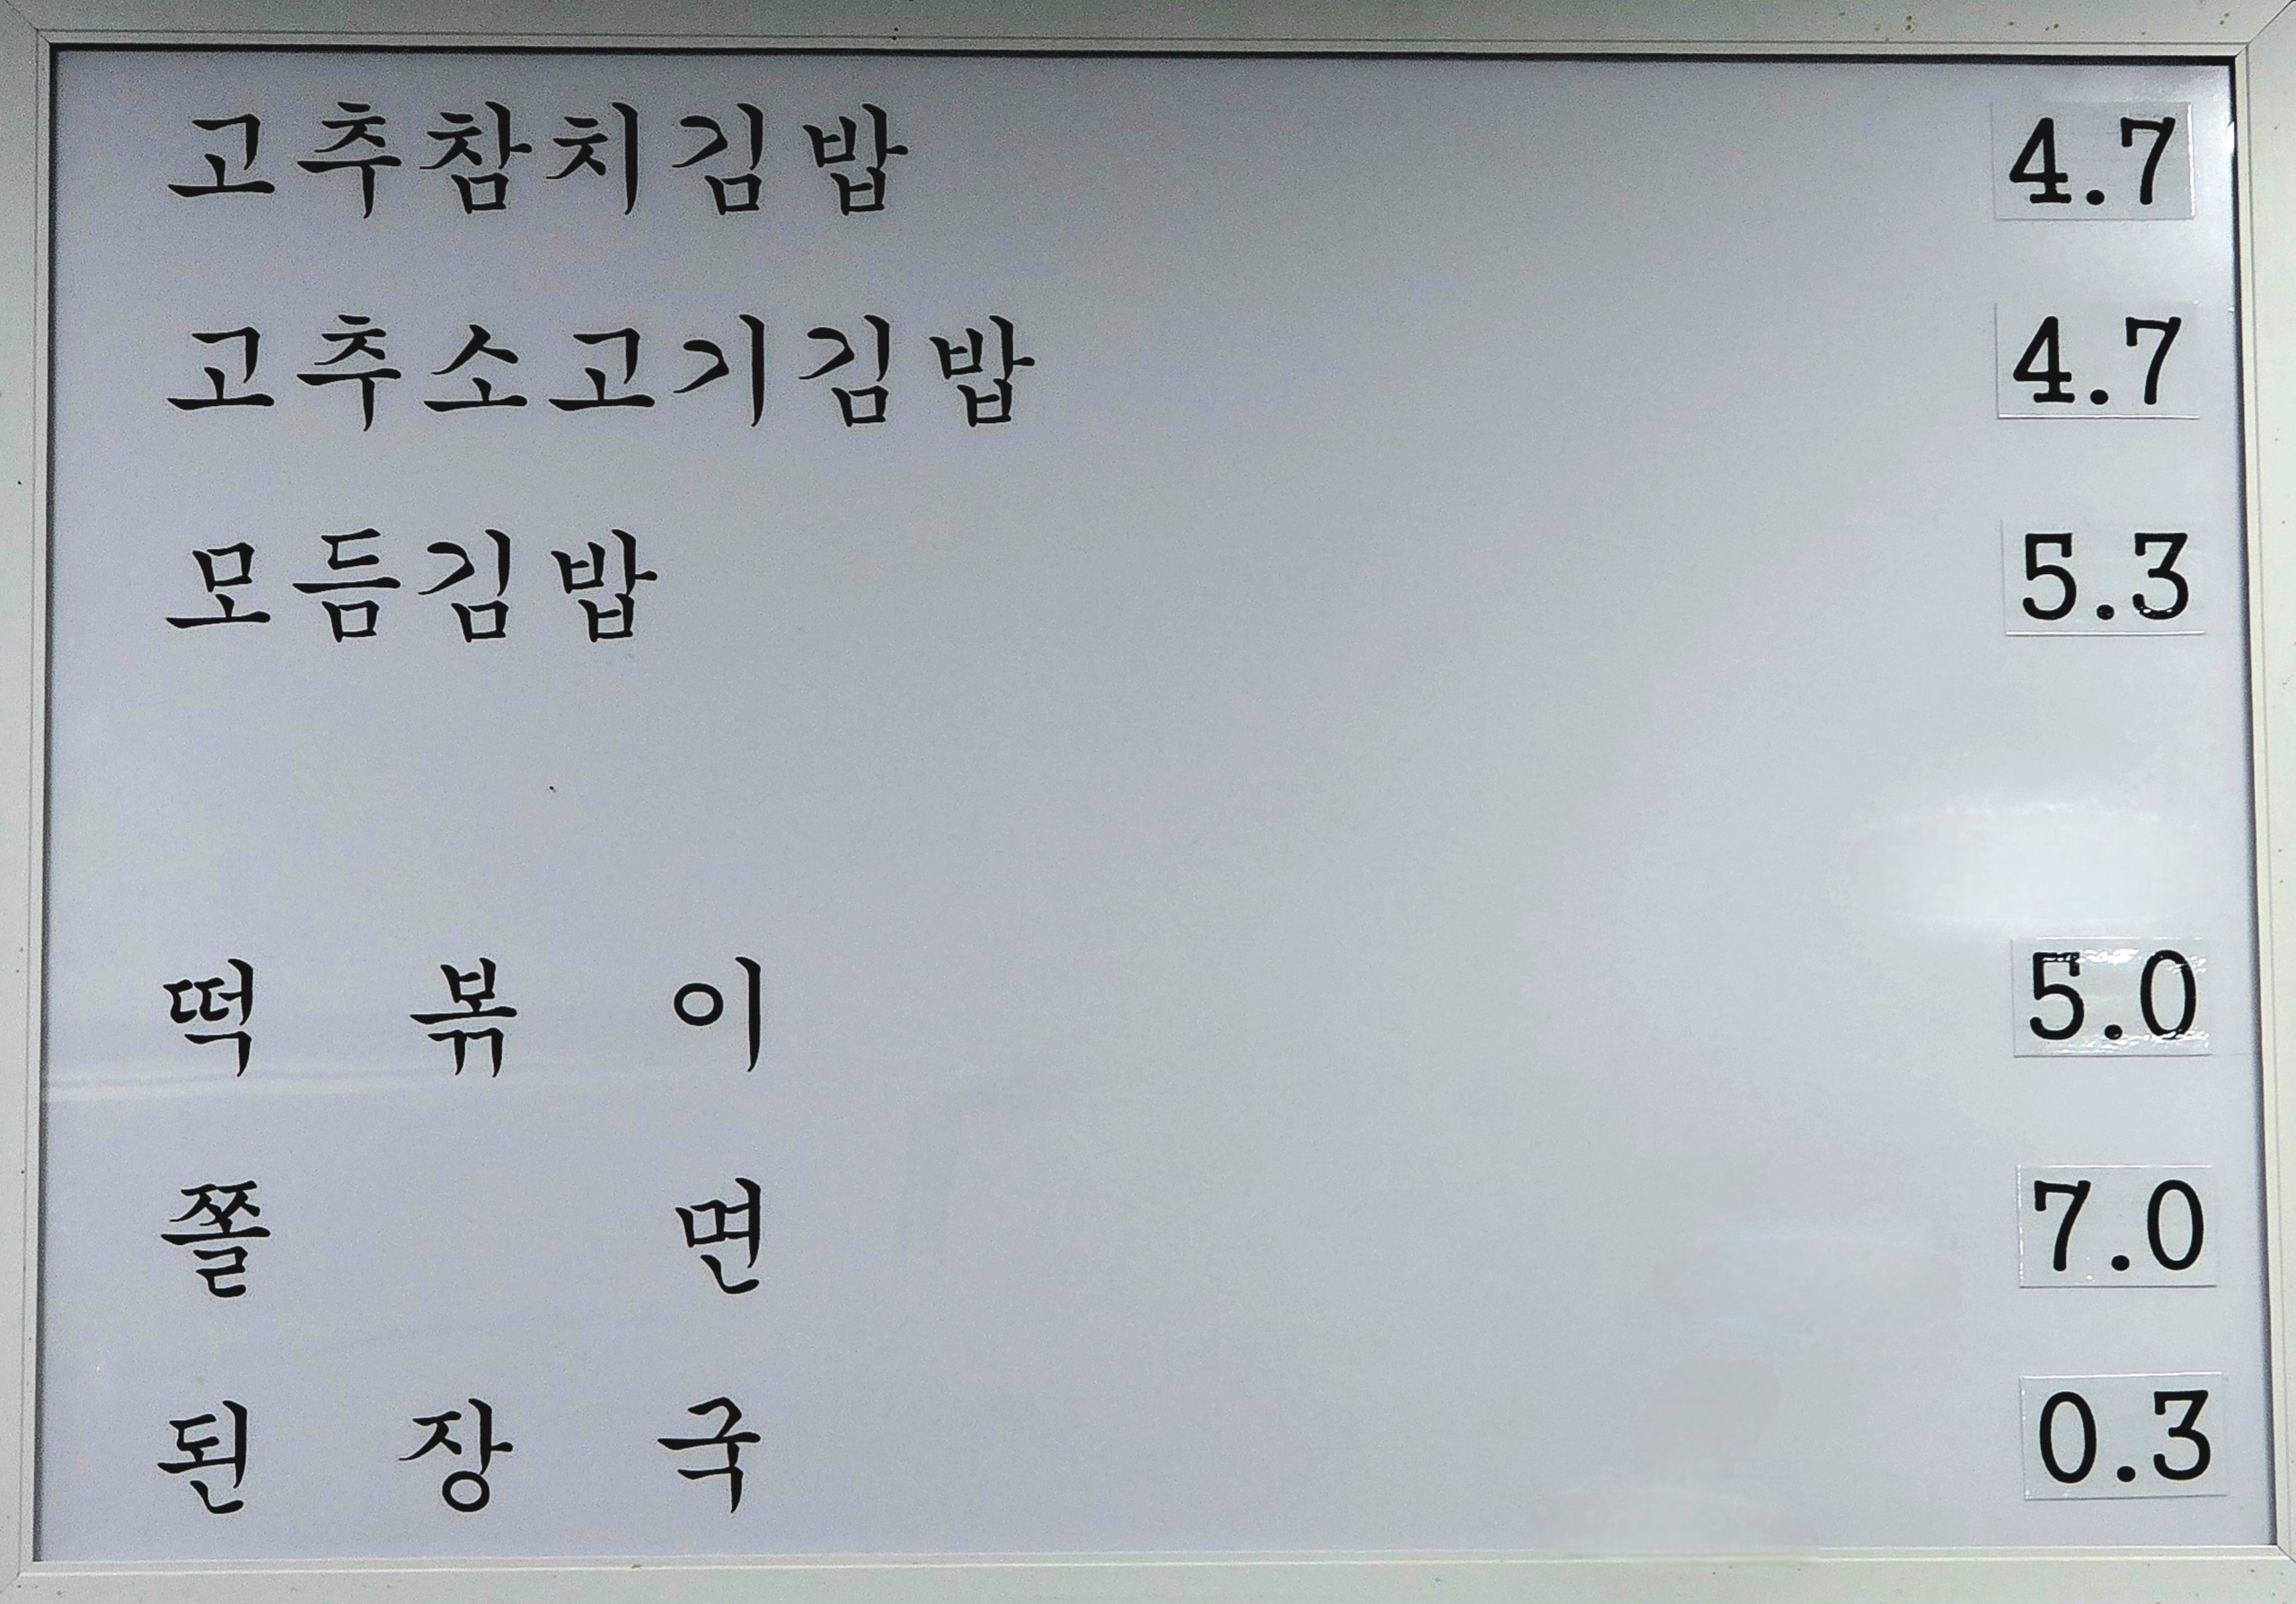 고추참치김밥 4.7
고추소고기김밥 4.7
모듬김밥 5.3
떡볶이 5.0
쫄면 7.0
된장국 0.3